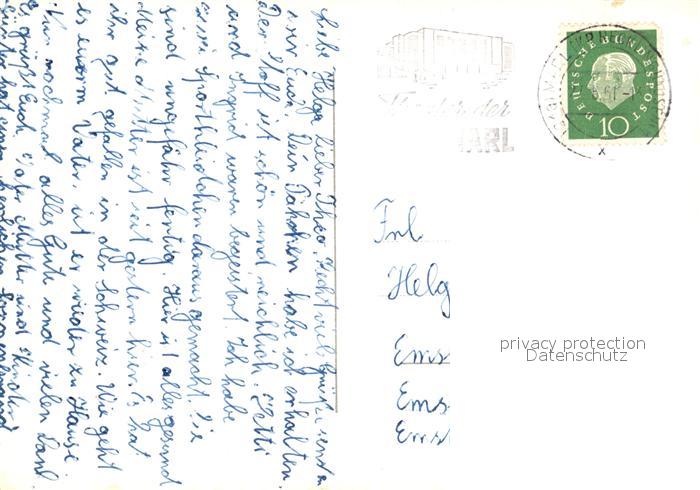 Liebe Helga, lieber Theo, recht viele Grüße send
wir Euch. Dein Päckchen habe ich erhalten.
Der Stoff ist schön und reichlich. Jetti
und Ingrid waren begeistert. Ich habe
Sporthleidchen daraus gemacht. Sie
sind ungefähr fertig. Hier ist alles gesund
Meine Mutter ist seit gestern hier. Es hat
ihr gut gefallen in der Schweiz. Wie geht
es eurem Vater, ist er wieder zu Hause
Nun nochmal alles Gute und vielen Dank
Es grüßt Euch Mutter und Kinder
DEUTSCHE BUNDESPOST
10
der
MARL
Frl
Helg
Ems
Ems
Ems
privacy protection
Datenschutz